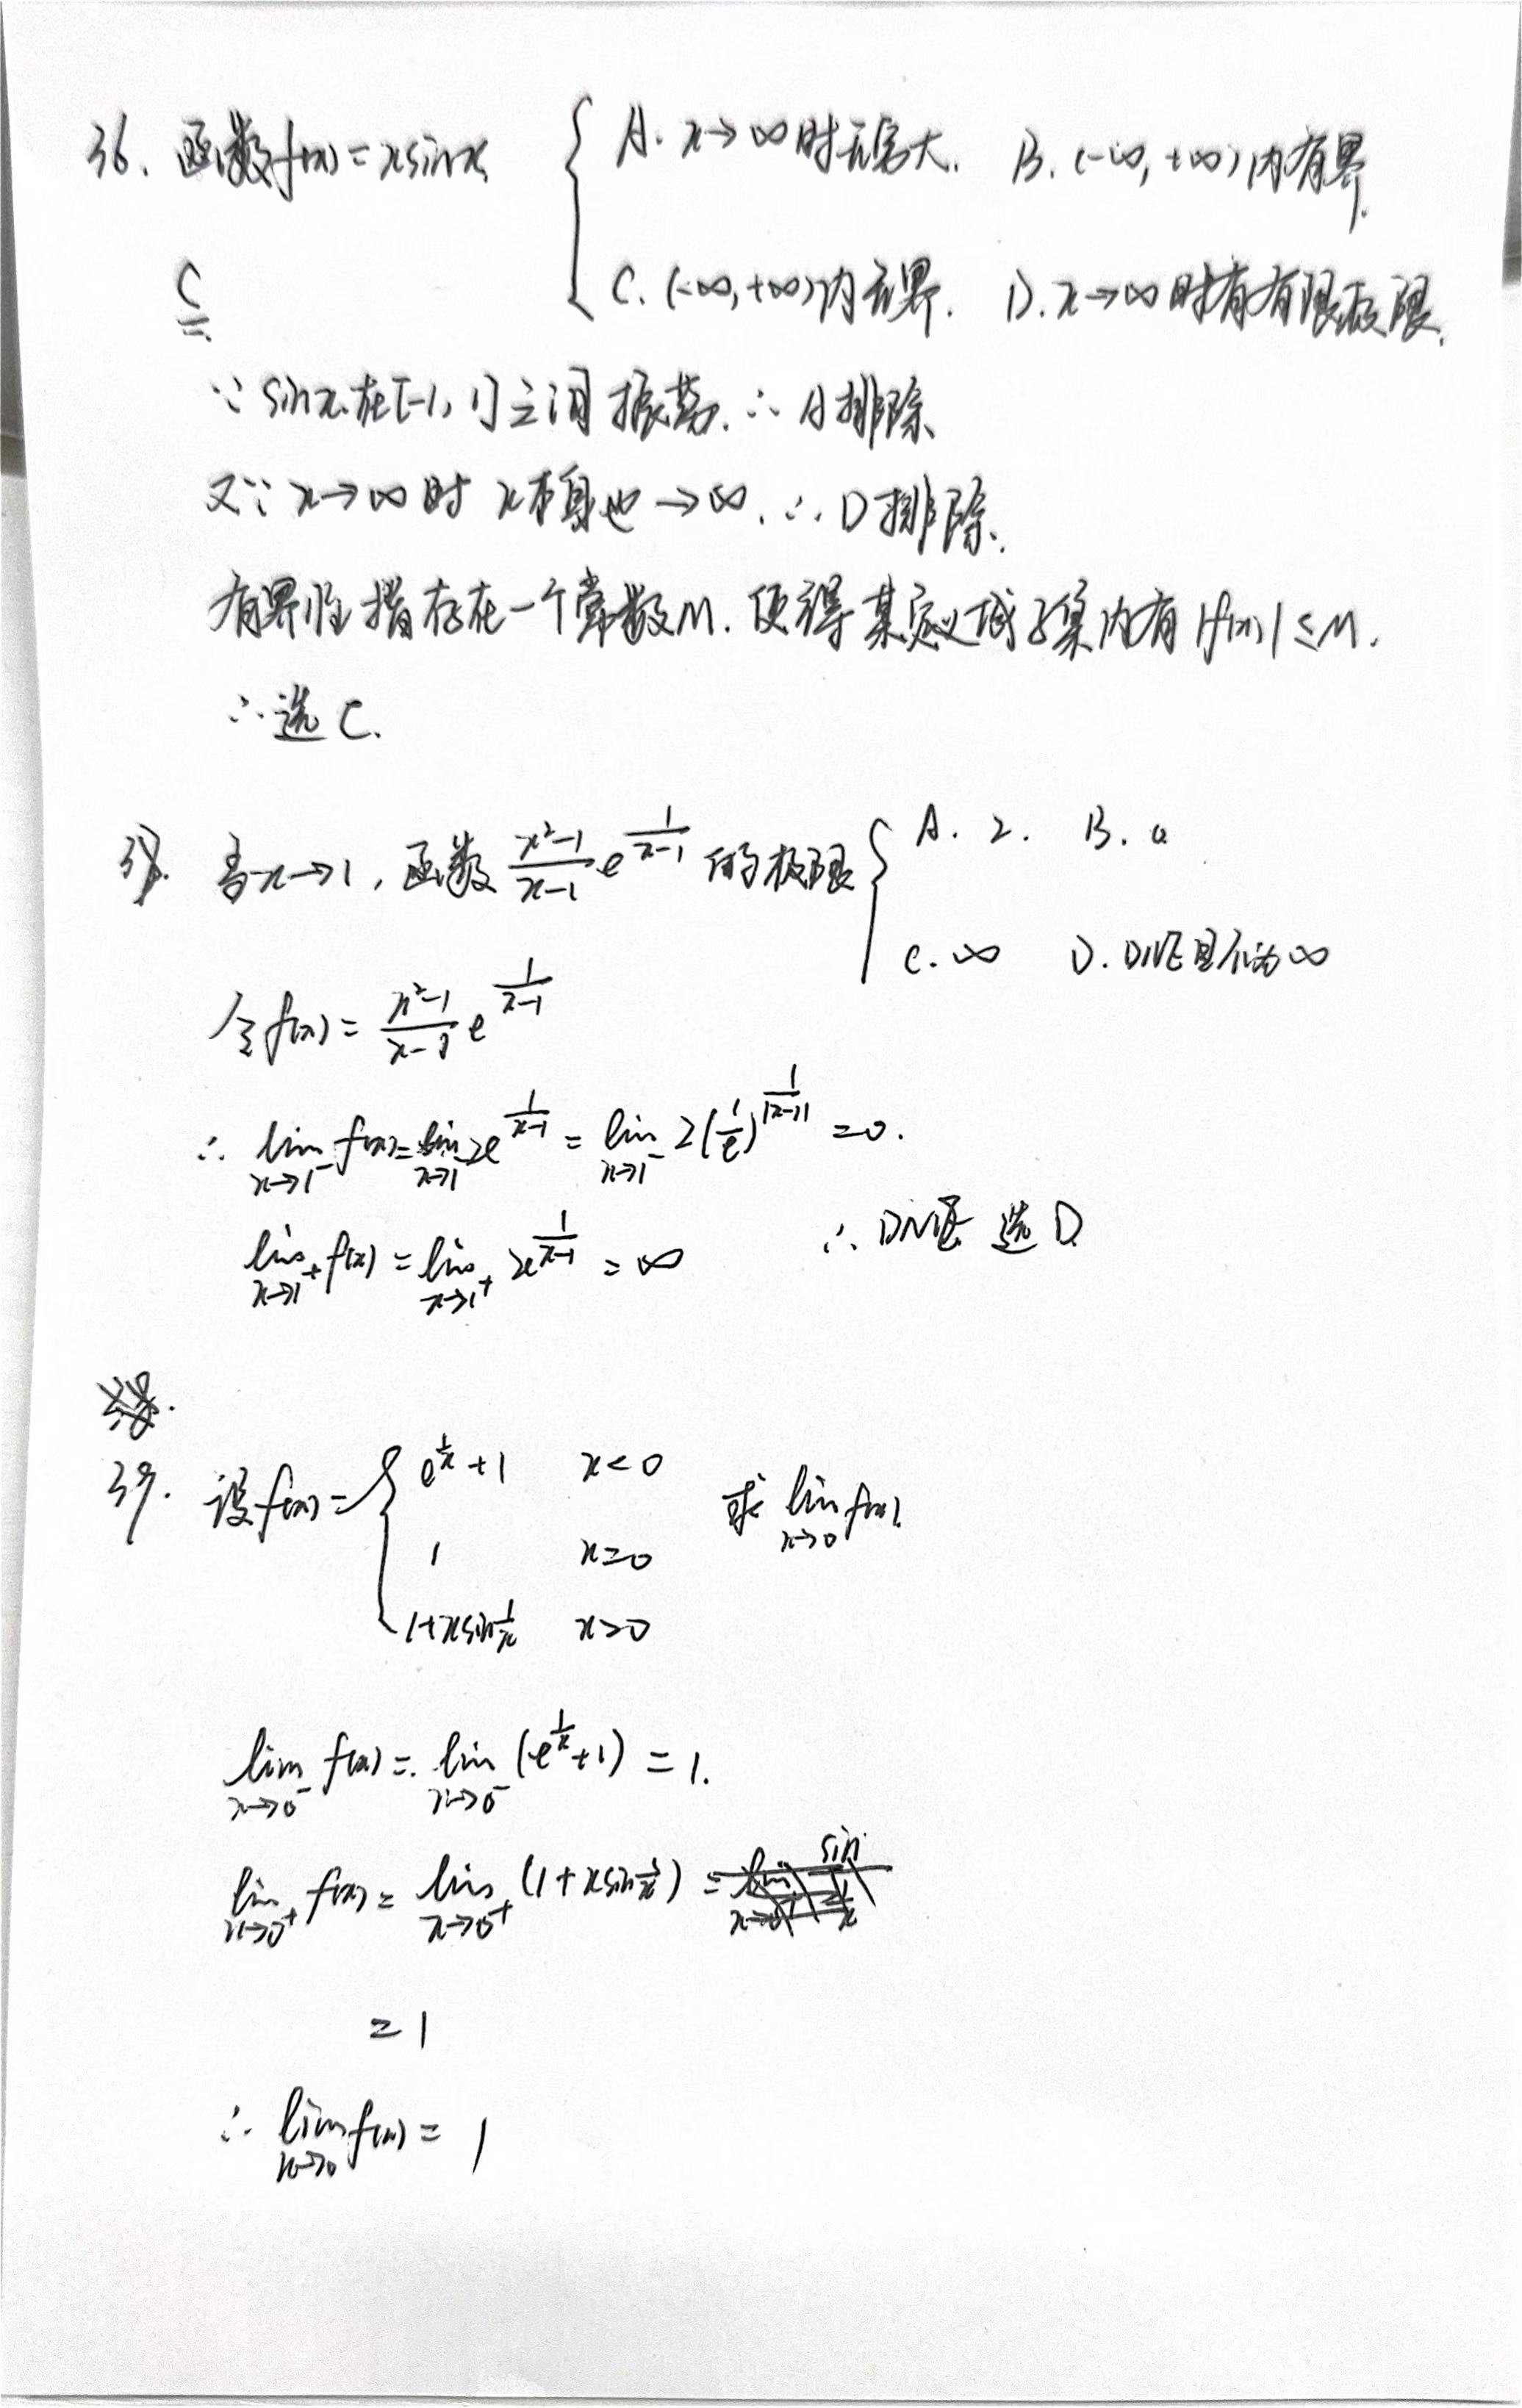 36. 函数f(x)=xsinx { A. x→∞时无穷大. B. (-∞,+∞)内有界.
C C. (-∞,+∞)内无界. D. x→∞时有有限极限.
∵ sinx在[-1,1]之间振荡. ∴ A排除
又∵ x→∞时 x本身也→∞. ∴ D排除.
有界性指存在一个常数M. 使得某定义域子集内有|f(x)|≤M.
∴选C.
38. 当x→1, 函数 \frac{x²-1}{x-1}e^{\frac{1}{x-1}} 的极限 { A. 2. B. 0
C. ∞ D. DNE且不为∞
令f(x)=\frac{x²-1}{x-1}e^{\frac{1}{x-1}}
∴ \lim_{x→1^-} f(x)=\lim_{x→1^-} 2e^{\frac{1}{x-1}} = \lim_{x→1^-} 2(\frac{1}{e})^{\frac{1}{|x-1|}} =0.
\lim_{x→1^+} f(x) = \lim_{x→1^+} 2e^{\frac{1}{x-1}} = ∞ ∴ DNE 选D
39. 设f(x)= { e^{\frac{1}{x}}+1 x<0 求 \lim_{x→0} f(x)
1 x=0
1+xsin\frac{1}{x} x>0
\lim_{x→0^-} f(x) = \lim_{x→0^-} (e^{\frac{1}{x}}+1) = 1.
\lim_{x→0^+} f(x) = \lim_{x→0^+} (1+xsin\frac{1}{x})
=1
∴ \lim_{x→0} f(x) = 1